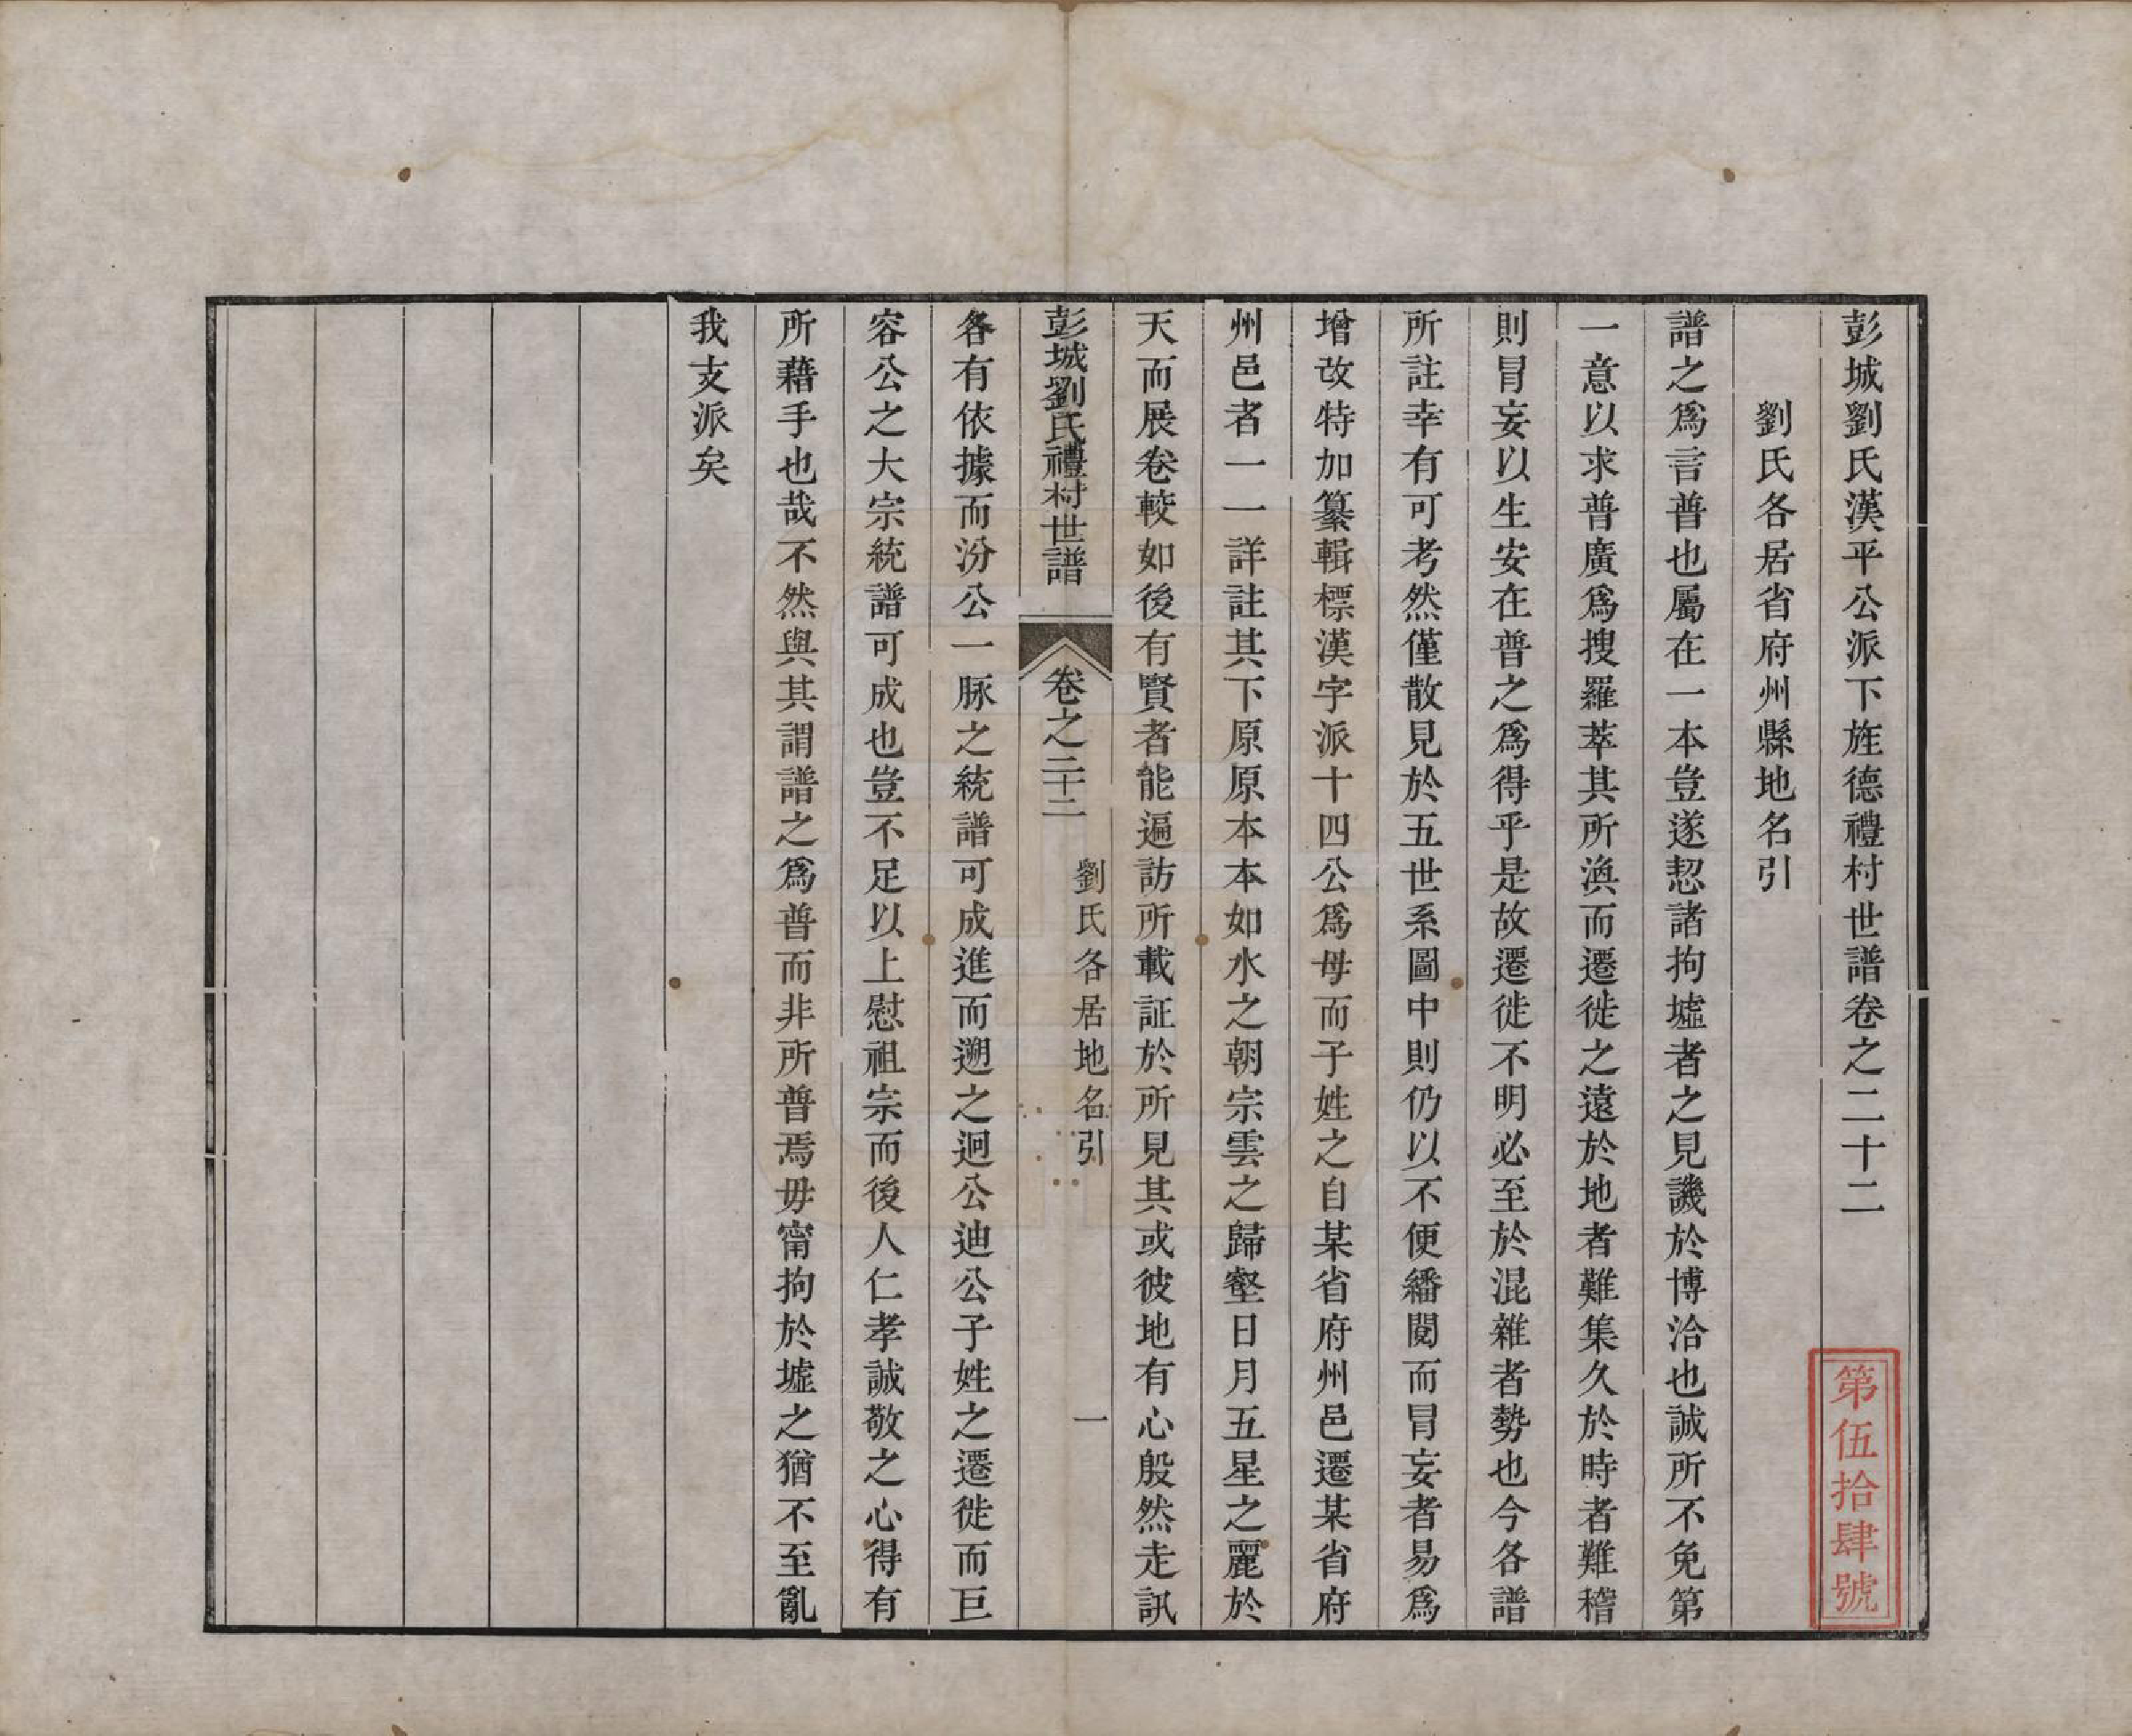 彭城劉氏漢平公派下旌德禮村世譜卷之二十二
劉氏各居省府州縣地名引
譜之爲言普也屬在一本豈遂恝諸拘墟者之見譏於博洽也誠所不免第
一意以求普廣爲搜羅萃其所渙而遷徙之遠於地者難集久於時者難稽
則冒妄以生安在普之爲得乎是故遷徙不明必至於混雜者勢也今各譜
所註幸有可考然僅散見於五世系圖中則仍以不便繙閱而冒妄者易爲
增改特加纂輯標漢字派十四公爲母而子姓之自某省府州邑遷某省府
州邑者一一詳註其下原原本本如水之朝宗雲之歸壑日月五星之麗於
天而展卷較如後有賢者能遍訪所載証於所見其或彼地有心殷然走訊
彭城劉氏禮村世譜
卷之二十二
劉氏各居地名引
一
各有依據而汾公一脉之統譜可成進而遡之迥公迪公子姓之遷徙而巨
容公之大宗統譜可成也豈不足以上慰祖宗而後人仁孝誠敬之心得有
所藉手也哉不然與其謂譜之爲普而非所普焉毋甯拘於墟之猶不至亂
我支派矣
第伍拾肆號